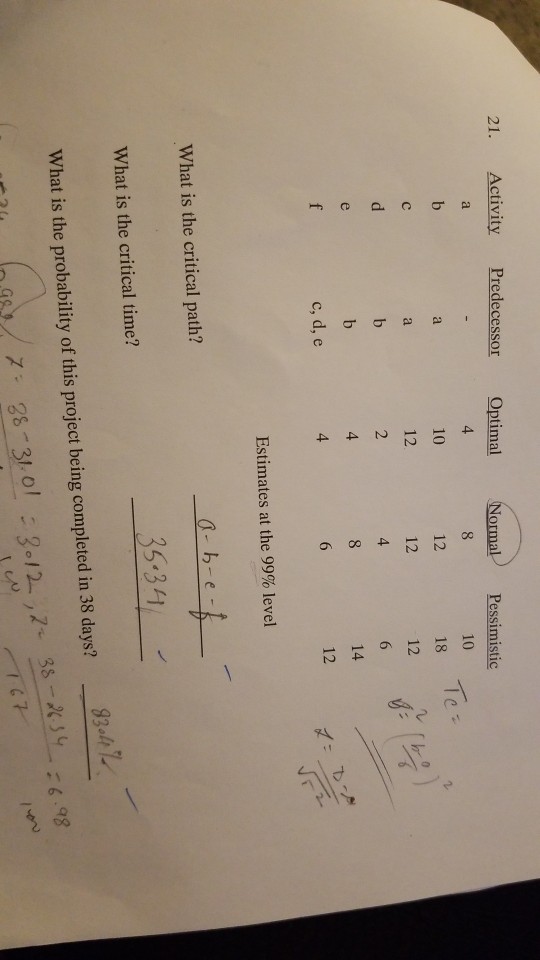 21. Activity Predecessor Optimal Normal Pessimistic
a - 4 8 10
b a 10 12 18
c a 12 12 12
d b 2 4 6
e b 4 8 14
f c, d, e 4 6 12
Tc =
Estimates at the 99% level
What is the critical path? a-b-e-f
What is the critical time? 35.34
What is the probability of this project being completed in 38 days? 83.4%
Z = 38 - 31.01 = 3.012, Z = 38 - 26.34 = 6.98
1.67